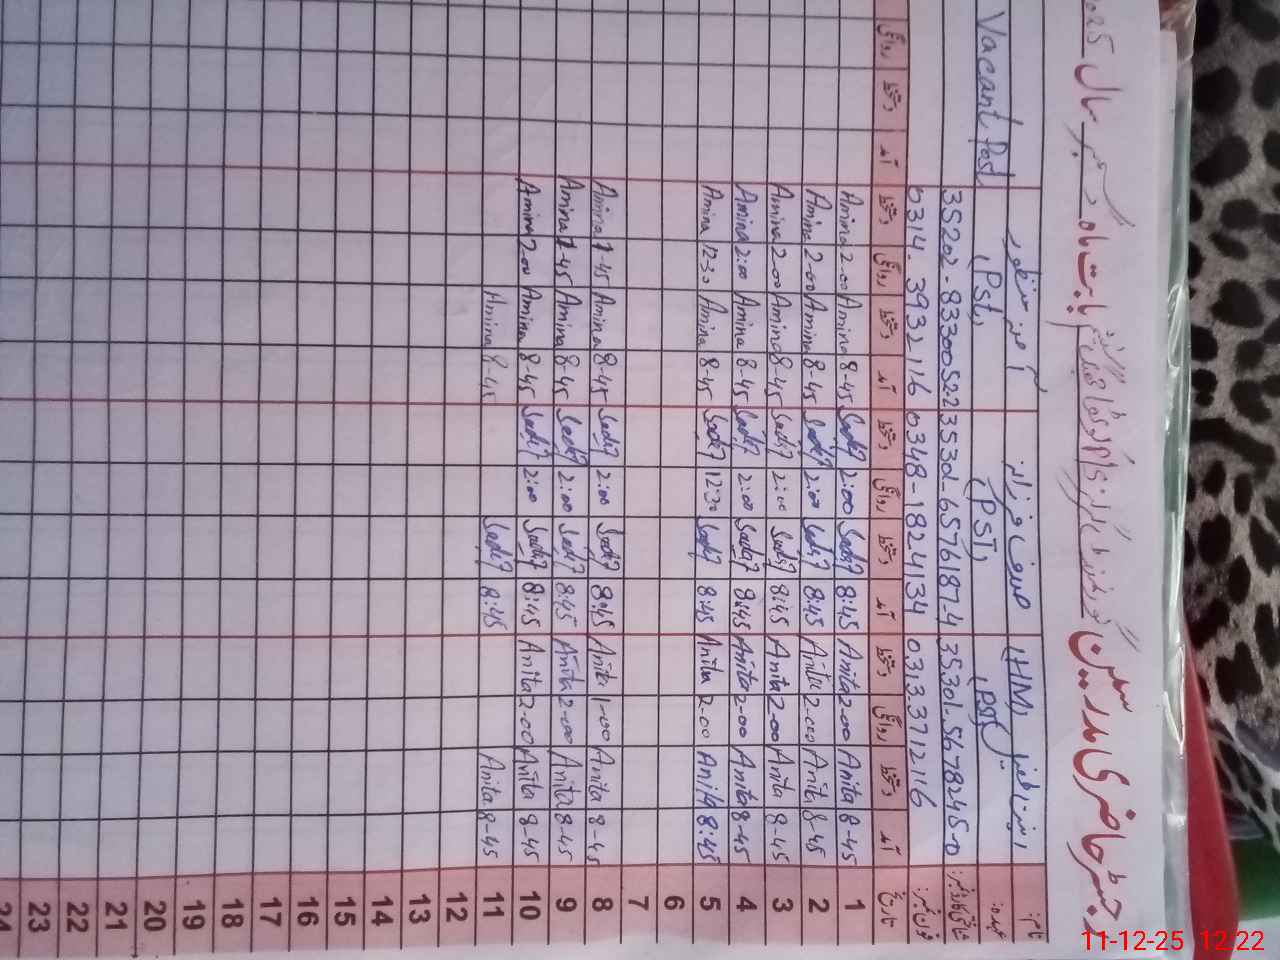 رجسٹر حاضری مدرسین گورنمنٹ گرلز پرائمری سکول بابت ماہ دسمبر سال 2025
نام: انیتا (HM) آمنہ منظور
عہدہ: PST (PST) (PST) Vacant Post
شناختی کارڈ نمبر: 35301-5678245-0 35301-6576187-4 35202-8330052-2
فون نمبر: 0313-3712116 0348-1824134 0314-3932116
تاریخ آمد دستخط روانگی دستخط آمد دستخط روانگی دستخط آمد دستخط روانگی دستخط آمد دستخط روانگی
1 8-45 Anita 2-00 Anita 8:45 Sadi? 2:00 Sadi? 8-45 Amina 2-00 Amina
2 8-45 Anita 2-00 Anita 8:45 Sadi? 2:00 Sadi? 8-45 Amina 2-00 Amina
3 8-45 Anita 2-00 Anita 8:45 Sadi? 2:00 Sadi? 8-45 Amina 2-00 Amina
4 8-45 Anita 2-00 Anita 8:45 Sadi? 2:00 Sadi? 8-45 Amina 2:00 Amina
5 8:45 Anita 2-00 Anita 8:45 Sadi? 12:30 Sadi? 8-45 Amina 12:30 Amina
6
7
8 8-45 Anita 1-00 Anita 8:45 Sadi? 2:00 Sadi? 8-45 Amina 1-45 Amina
9 8-45 Anita 2-00 Anita 8:45 Sadi? 2:00 Sadi? 8-45 Amina 1-45 Amina
10 8-45 Anita 2-00 Anita 8:45 Sadi? 2:00 Sadi? 8-45 Amina 2-00 Amina
11 8-45 Anita 8:45 Sadi? 8-45 Amina
12
13
14
15
16
17
18
19
20
21
22
23
24
11-12-25 12:22